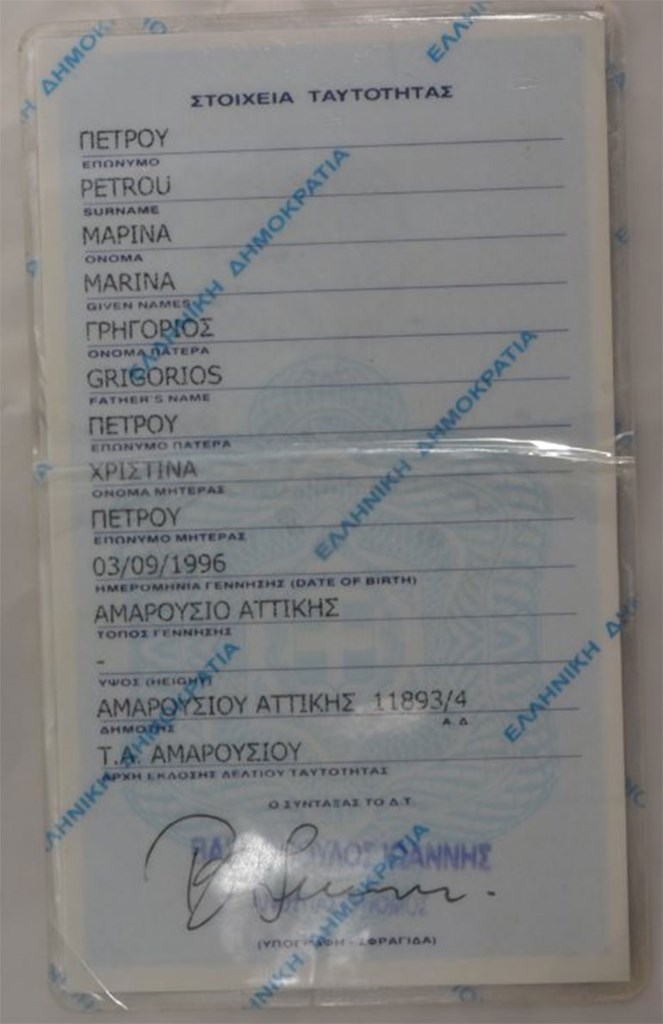 ΣΤΟΙΧΕΙΑ ΤΑΥΤΟΤΗΤΑΣ
ΠΕΤΡΟΥ
ΕΠΩΝΥΜΟ
PETROU
SURNAME
ΜΑΡΙΝΑ
ΟΝΟΜΑ
MARINA
GIVEN NAMES
ΓΡΗΓΟΡΙΟΣ
ΟΝΟΜΑ ΠΑΤΕΡΑ
GRIGORIOS
FATHER'S NAME
ΠΕΤΡΟΥ
ΕΠΩΝΥΜΟ ΠΑΤΕΡΑ
ΧΡΙΣΤΙΝΑ
ΟΝΟΜΑ ΜΗΤΕΡΑΣ
ΠΕΤΡΟΥ
ΕΠΩΝΥΜΟ ΜΗΤΕΡΑΣ
03/09/1996
ΗΜΕΡΟΜΗΝΙΑ ΓΕΝΝΗΣΗΣ (DATE OF BIRTH)
ΑΜΑΡΟΥΣΙΟ ΑΤΤΙΚΗΣ
ΤΟΠΟΣ ΓΕΝΝΗΣΗΣ
-
ΥΨΟΣ (HEIGHT)
ΑΜΑΡΟΥΣΙΟΥ ΑΤΤΙΚΗΣ 11893/4
ΔΗΜΟΤΗΣ Α.Δ.
Τ.Α. ΑΜΑΡΟΥΣΙΟΥ
ΑΡΧΗ ΕΚΔΟΣΗΣ ΔΕΛΤΙΟΥ ΤΑΥΤΟΤΗΤΑΣ
Ο ΣΥΝΤΑΞΑΣ ΤΟ Δ.Τ.
(ΥΠΟΓΡΑΦΗ - ΣΦΡΑΓΙΔΑ)
ΕΛΛΗΝΙΚΗ ΔΗΜΟΚΡΑΤΙΑ
ΕΛΛΗΝΙΚΗ ΔΗΜΟΚΡΑΤΙΑ